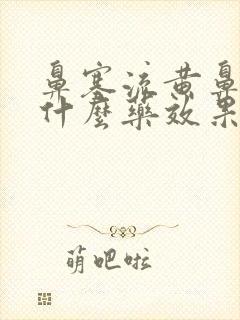 鼻塞流黄鼻
什麼藥效果
萌吧啦